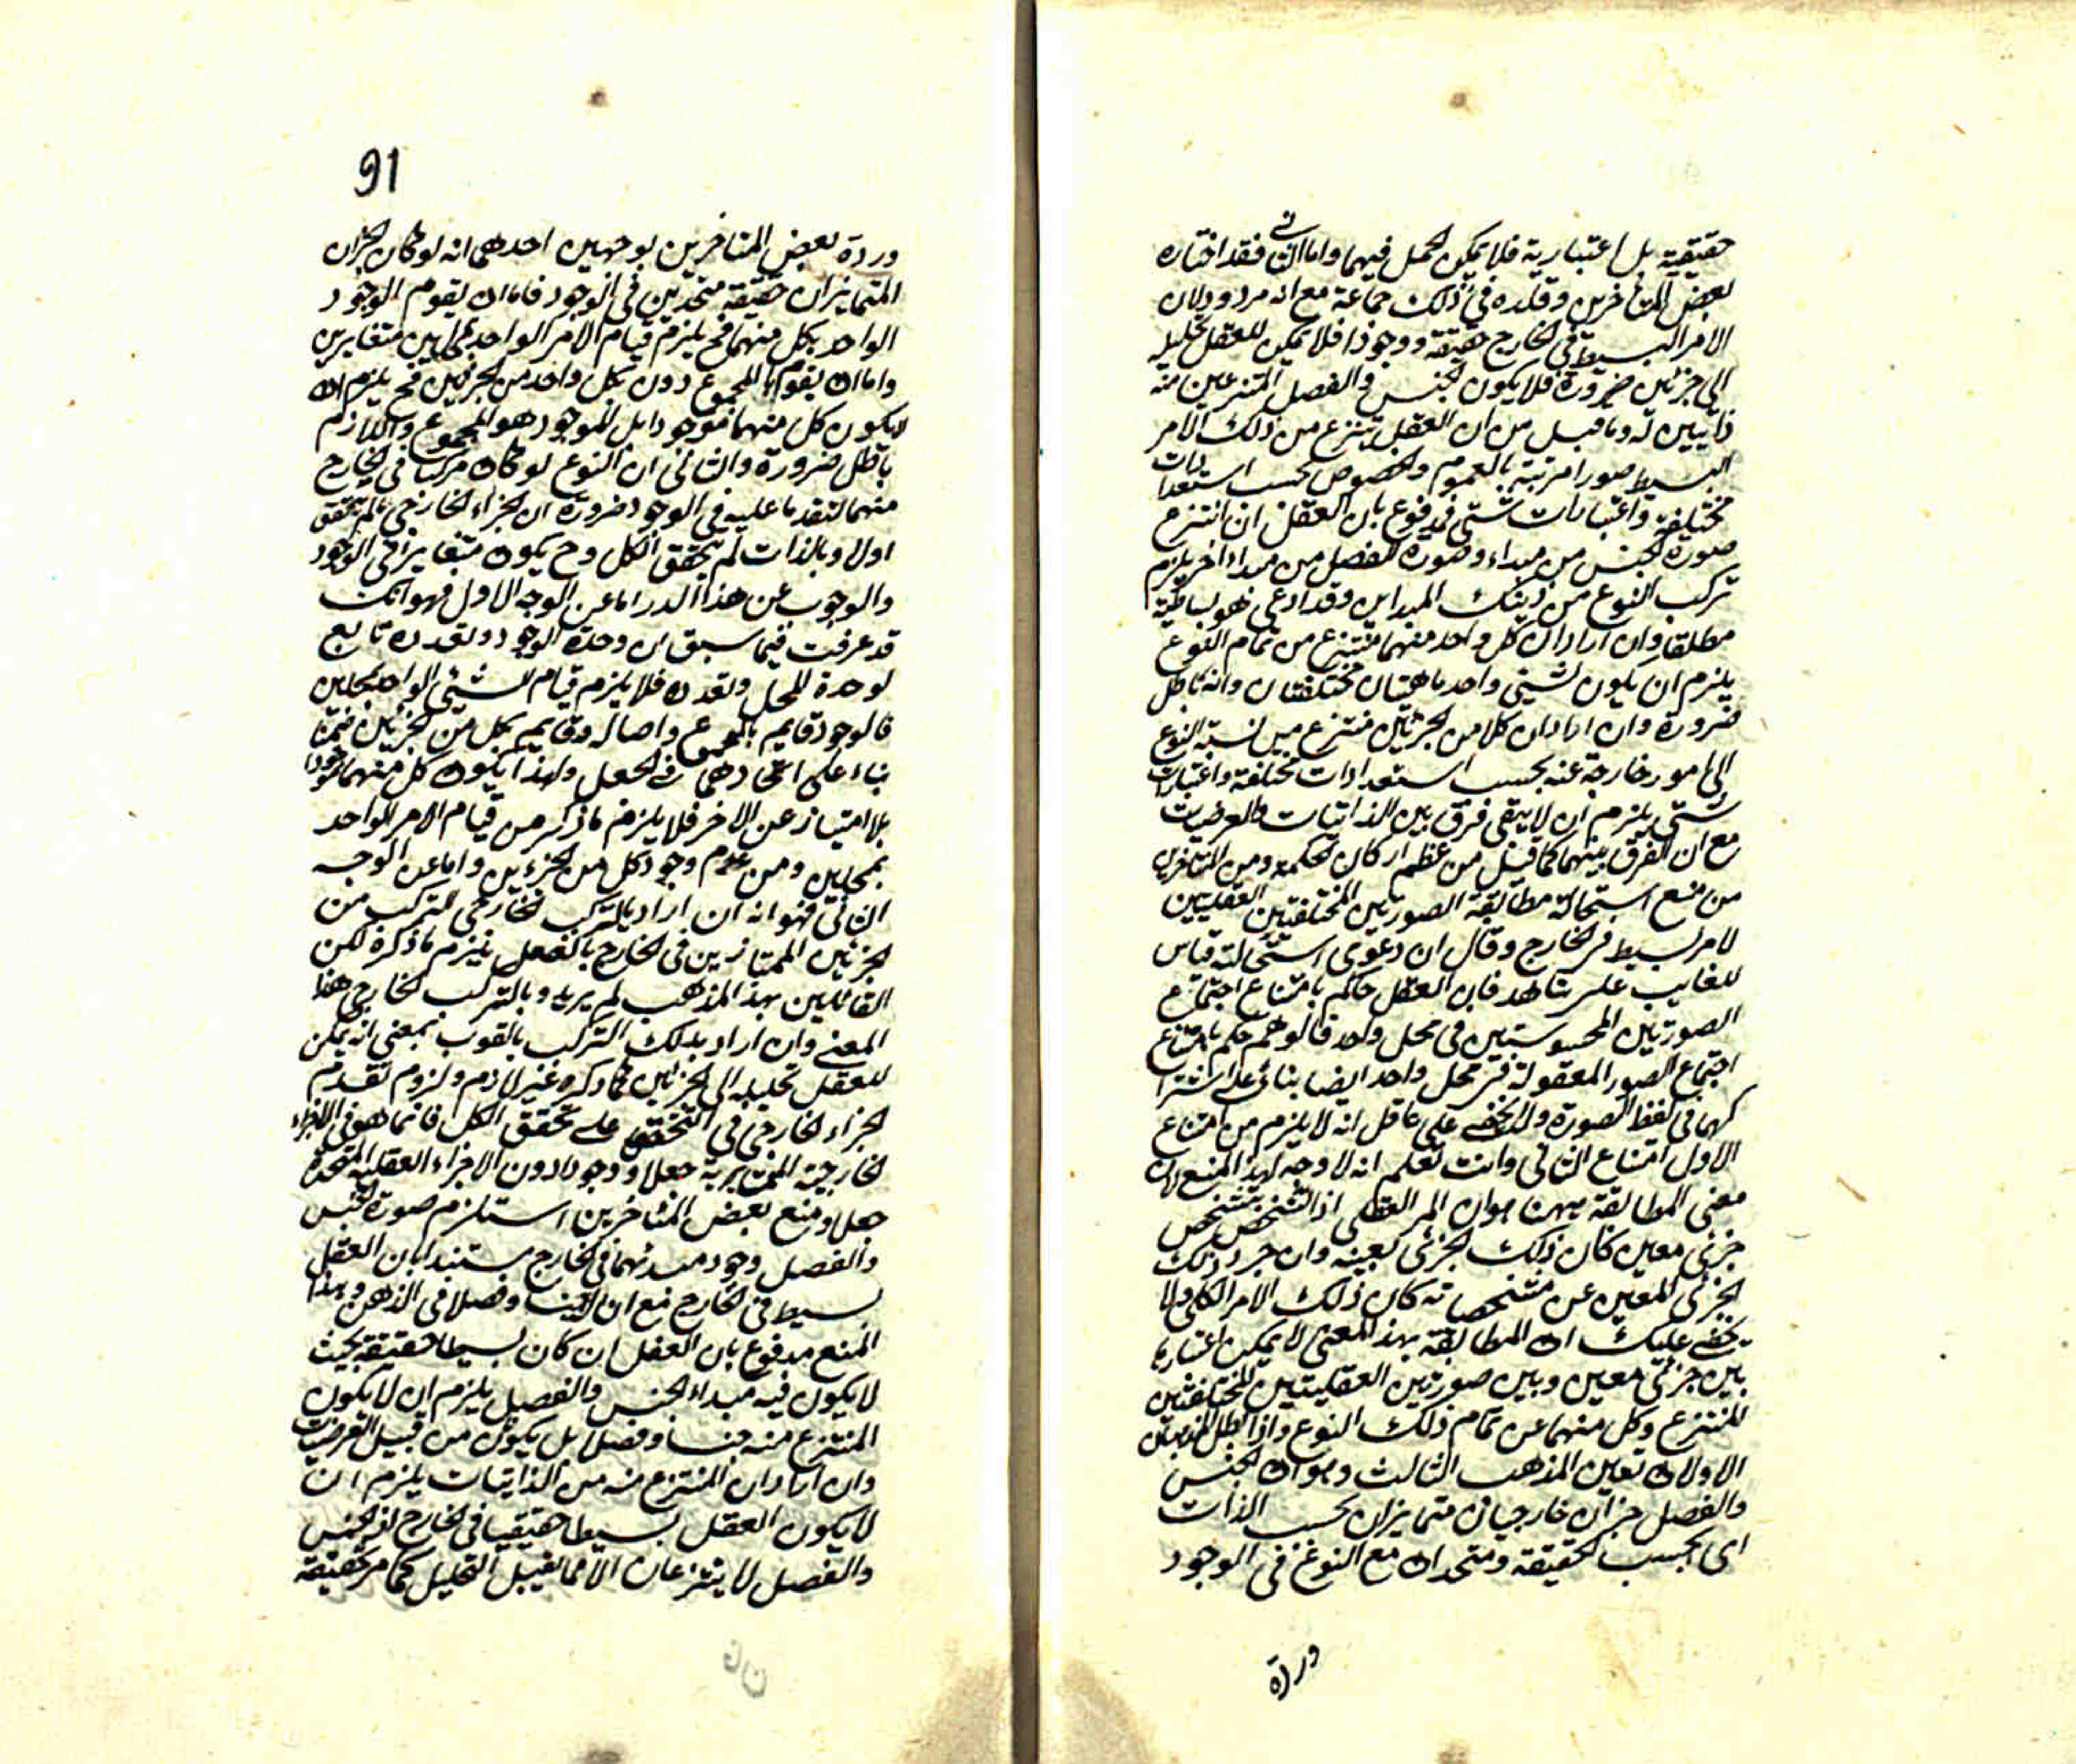 حقيقية بل اعتبارية فلا يمكن الحمل فيهما واما الثانى فقد اختاره
بعض المتأخرين وقلده فى ذلك جماعة مع انه مردود لان
الامر البسيط فى الخارج حقيقة ووجودا فلا يمكن للعقل تحليله
الى جزئين ضرورة فلا يكون الجنس والفصل المنتزعين منه
ذاتيين له وما قيل من ان العقل ينتزع من ذلك الامر
البسيط صورا مرتبة بالعموم والخصوص بحسب استعدادات
مختلفة واعتبارات شتى فمدفوع بان العقل ان انتزع
صورة الجنس من مبداء وصورة الفصل من مبداء اخر يلزم
تركب النوع من ذينك المبداين وقد ادعى هو بساطته
مطلقا وان اراد ان كل واحد منهما منتزع من تمام النوع
يلزم ان يكون لشيئ واحد ماهيتان مختلفتان وانه باطل
ضرورة وان اراد ان كلا من الجزئين منتزع من نسبة النوع
الى امور خارجة عنه بحسب استعدادات مختلفة واعتبارات
شتى يلزم ان لا يبقى فرق بين الذاتيات والعرضيات
مع ان الفرق بينهما كما قيل من عظم اركان الحكمة ومن المتاخرين
من منع استحالة مطابقة الصورتين المختلفتين العقليتين
لامر بسيط فى الخارج وقال ان دعوى استحالته قياس
للغايب على شاهد فان العقل حاكم بامتناع اجتماع
الصورتين المحسوستين فى محل واحد فالوهم حكم بامتناع
اجتماع الصور المعقولة فى محل واحد ايضا بناء على اشترا
كهما فى لفظ الصورة ولا يخفى على عاقل انه لا يلزم من امتناع
الاول امتناع الثانى وانت تعلم انه لا وجه لهذا المنع لان
معنى المطابقة ههنا هو ان الامر العقلى اذا تشخص بتشخص
جزئى معين كان ذلك الجزئى بعينه وان جرد ذلك
الجزئى المعين عن مشخصاته كان ذلك الامر الكلى ولا
يخفى عليك ان المطابقة بهذا المعنى لا يمكن اعتبارها
بين جزئى معين وبين صورتين العقليتين المختلفتين
المنتزع وكل منهما عن تمام ذلك النوع واذا بطل المذهبان
الاولان تعين المذهب الثالث وهو ان الجنس
والفصل جزان خارجيان متمايزان بحسب الذات
اى بحسب الحقيقة ومتحدان مع النوع فى الوجود
وردة
91
وردة بعض المتاخرين بوجهين احدهما انه لو كان الجزان
المتمايزان حقيقة متحدين فى الوجود فاما ان يقوم الوجود
الواحد بكل منهما فح يلزم قيام الامر الواحد بمحلين متغايرين
واما ان يقوم بالمجموع دون كل واحد من الجزئين فح يلزم ان
لا يكون كل منهما موجودا بل الموجود هو المجموع واللازم
باطل ضرورة والثانى ان النوع لو كان مركبا فى الخارج
منهما لتقدما عليه فى الوجود ضرورة ان الجزاء الخارجى ما لم يتحقق
اولا وبالذات لم يتحقق الكل وح يكون متغايرا فى الوجود
والوجوب عن هذا الدر اما عن الوجه الاول فهو انك
قد عرفت فيما سبق ان وحدة الوجود وتعدده تابع
لوحدة المحل وتعدده فلا يلزم قيام الشيئ الواحد بمحلين
فالوجود قايم بالمجموع واصاله وقايم بكل من الجزئين ضمنا
بناء على اتحادهما فى الجعل ولهذا يكون كل منهما موجودا
بلا امتياز عن الاخر فلا يلزم ما ذكر من قيام الامر الواحد
بمحلين ومن عدم وجود كل من الجزءين واما عن الوجه
الثانى فهو انه ان اراد بالتركب الخارجى التركب من
الجزئين الممتازين فى الخارج بالفعل يلزم ما ذكره لكن
القائلين بهذا المذهب لم يريدوا بالتركب الخارجى هذا
المعنى وان اراد بذلك التركب بالقوة بمعنى انه يمكن
للعقل تحليله الى الجزئين فما ذكره غير لازم ولزوم تقدم
الجزاء الخارجى فى التحقق على تحقق الكل فانما هو فى الاجزاء
الخارجية المتمايزية جعلا ووجودا دون الاجزاء العقلية المتحدة
جعلا ومنع بعض المتاخرين استلزم صورة الجنس
والفصل وجود مبدئهما فى الخارج مستندا بان العقل
بسيط فى الخارج مع ان له جنسا وفصلا فى الذهن وهذا
المنع مدفوع بان العقل ان كان بسيطا حقيقة بحيث
لا يكون فيه مبداء الجنس والفصل يلزم ان لا يكون
المنتزع منه جنسا وفصلا بل يكون من قبيل العرضيات
وان اراد ان المنتزع منه من الذاتيات يلزم ان
لا يكون العقل بسيطا حقيقيا فى الخارج اذ الجنس
والفصل لا ينتزعان الا مما يقبل التحليل كما مر تحقيقه